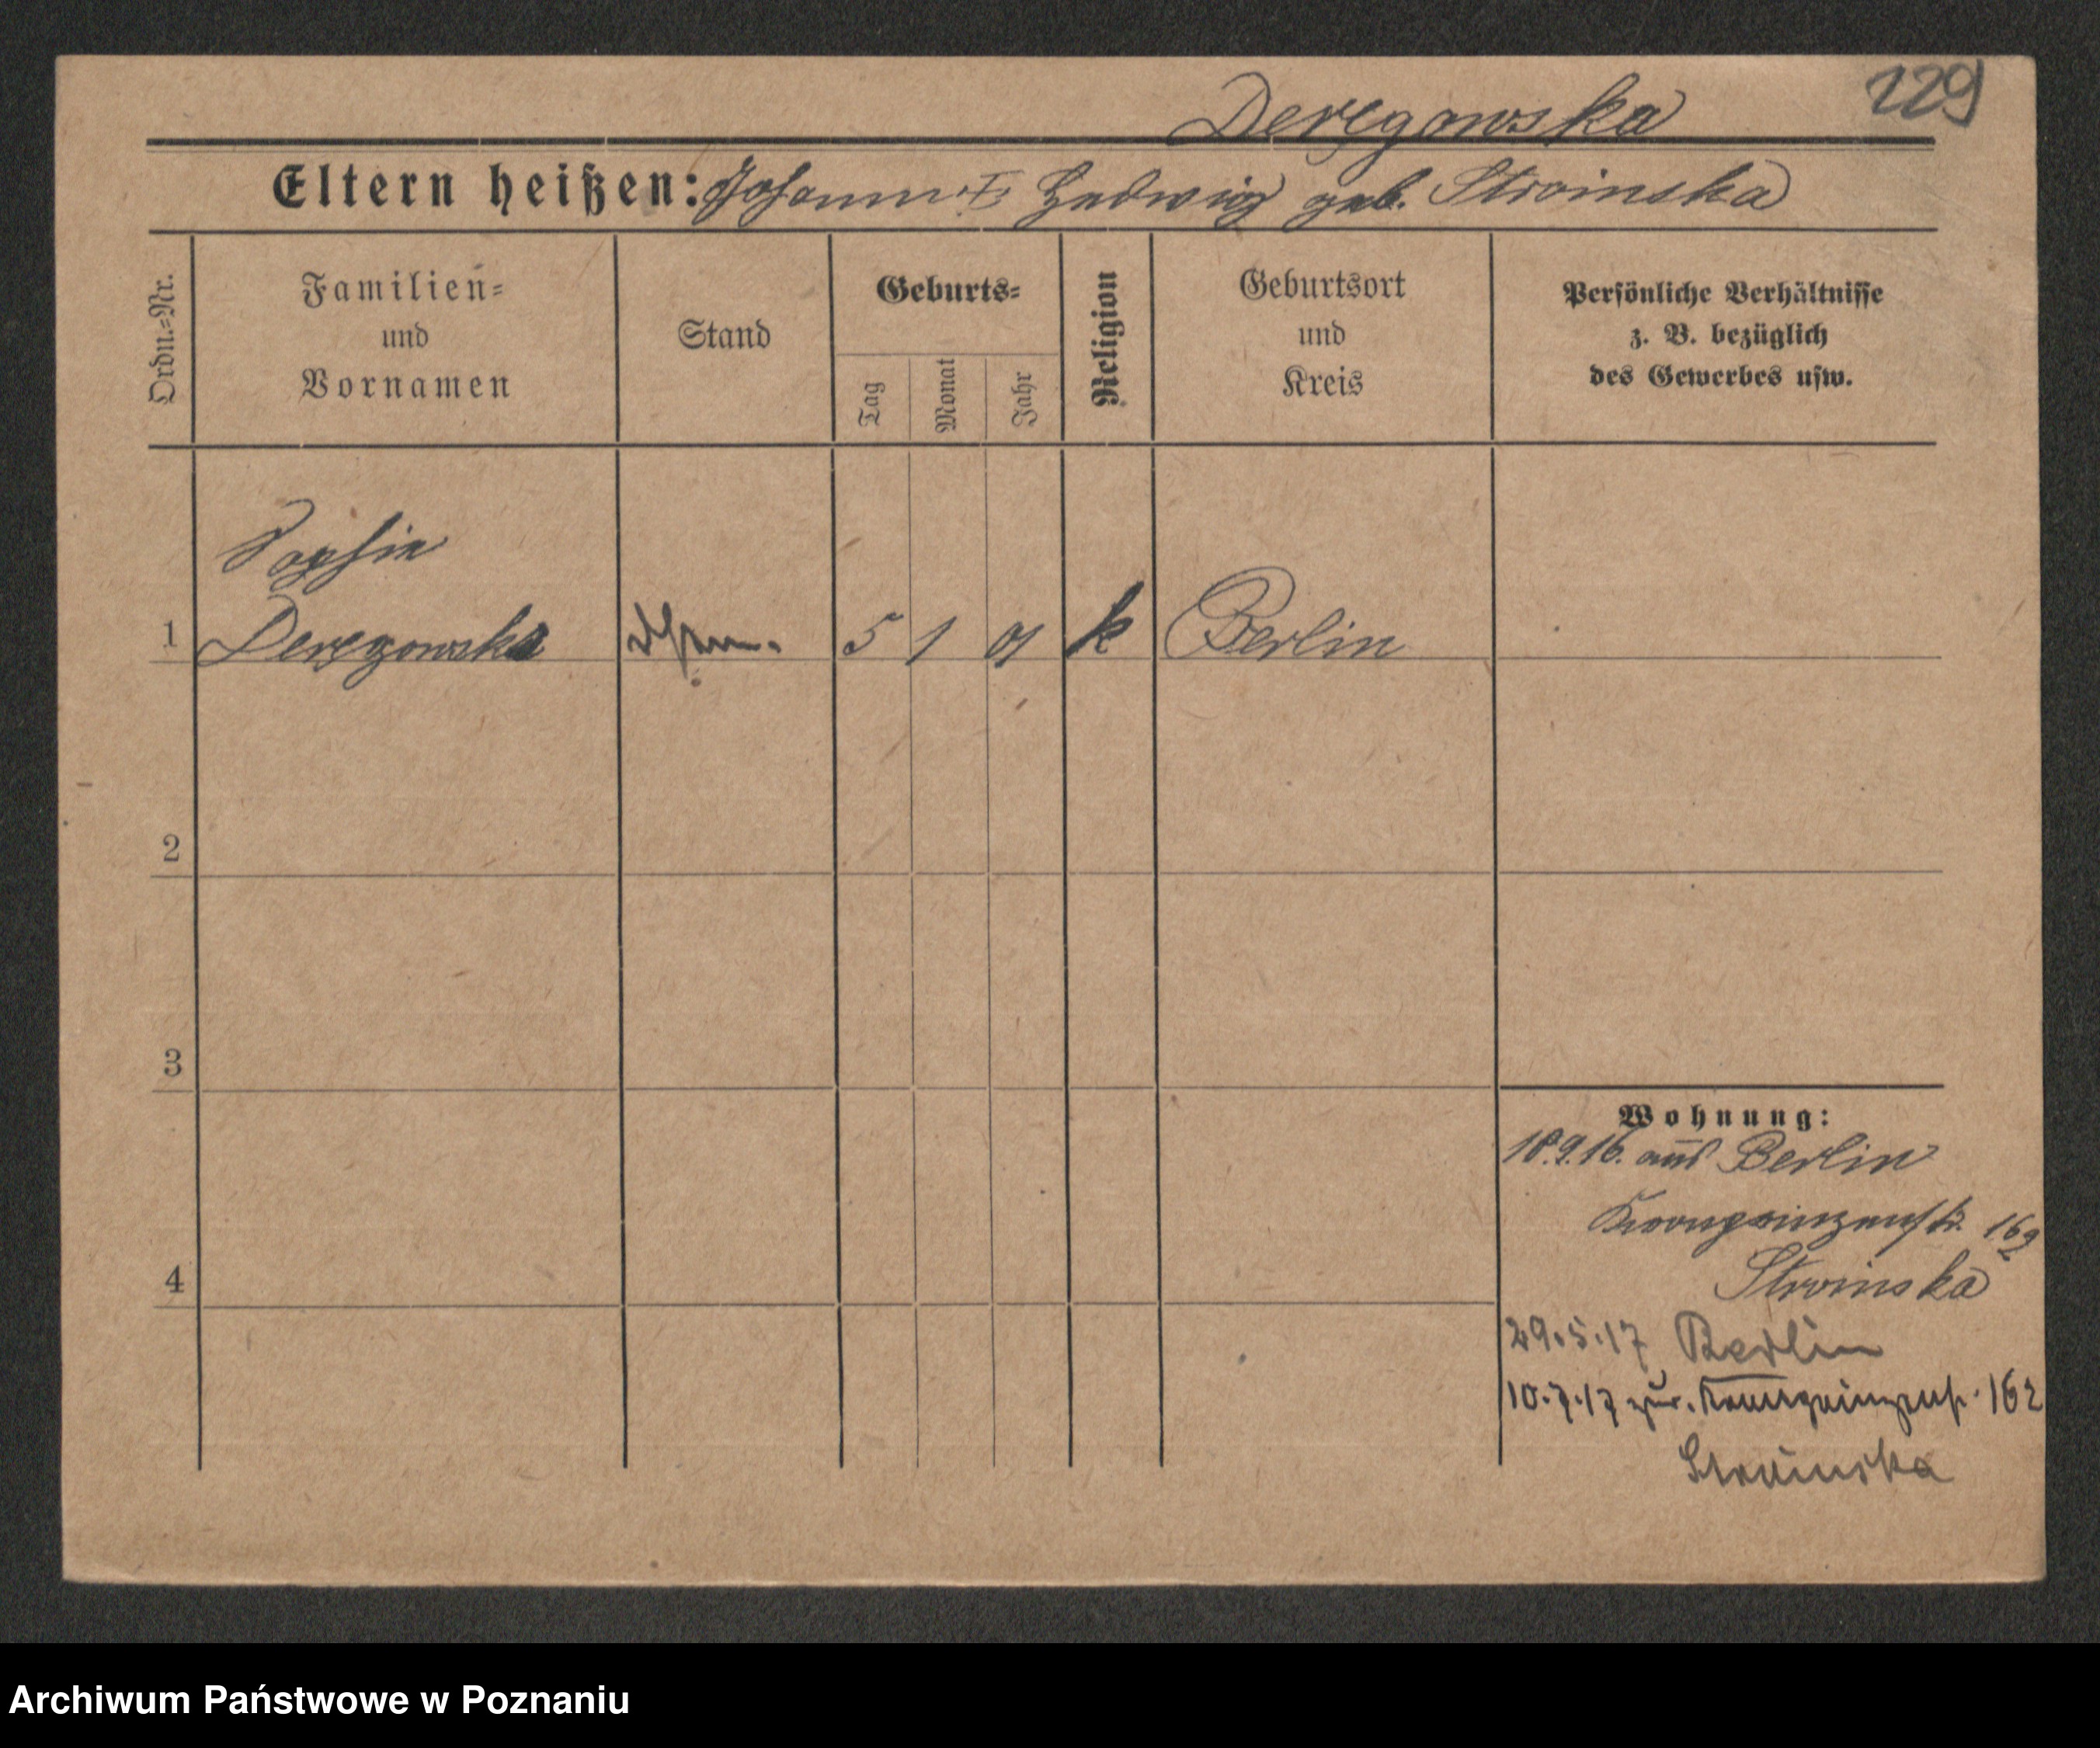 Deręgowska 129
Eltern heißen: Johann u. Hedwig geb. Stroinska
Ordn.=Nr.
Familien=
und
Vornamen
Stand
Geburts=
Tag
Monat
Jahr
Religion
Geburtsort
und
Kreis
Persönliche Verhältnisse
z. B. bezüglich
des Gewerbes usw.
Sophie
1 Deręgowska 5 1 01 k Berlin
2
3
4
Wohnung:
18.9.16. aus Berlin
Kronprinzenstr. 162
Stroinska
29.5.17 Berlin
10.7.17 zur. Kronprinzenstr. 162
Stroinska
Archiwum Państwowe w Poznaniu